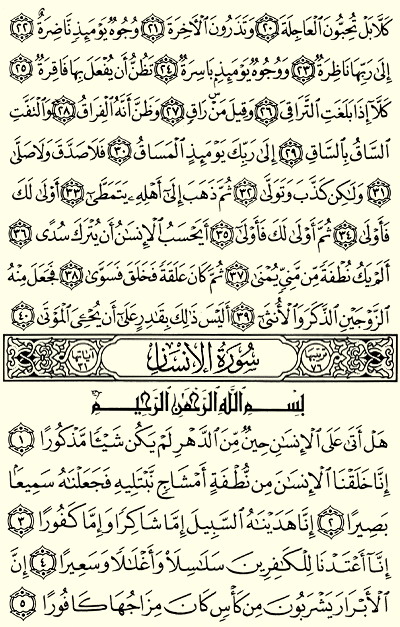 كَلَّا بَلْ تُحِبُّونَ الْعَاجِلَةَ ٢٠ وَتَذَرُونَ الْآخِرَةَ ٢١ وُجُوهٌ يَوْمَئِذٍ نَّاضِرَةٌ ٢٢
إِلَىٰ رَبِّهَا نَاظِرَةٌ ٢٣ وَوُجُوهٌ يَوْمَئِذٍ بَاسِرَةٌ ٢٤ تَظُنُّ أَن يُفْعَلَ بِهَا فَاقِرَةٌ ٢٥
كَلَّا إِذَا بَلَغَتِ التَّرَاقِيَ ٢٦ وَقِيلَ مَنْ ۜ رَاقٍ ٢٧ وَظَنَّ أَنَّهُ الْفِرَاقُ ٢٨ وَالْتَفَّتِ
السَّاقُ بِالسَّاقِ ٢٩ إِلَىٰ رَبِّكَ يَوْمَئِذٍ الْمَسَاقُ ٣٠ فَلَا صَدَّقَ وَلَا صَلَّىٰ
٣١ وَلَٰكِن كَذَّبَ وَتَوَلَّىٰ ٣٢ ثُمَّ ذَهَبَ إِلَىٰ أَهْلِهِ يَتَمَطَّىٰ ٣٣ أَوْلَىٰ لَكَ
فَأَوْلَىٰ ٣٤ ثُمَّ أَوْلَىٰ لَكَ فَأَوْلَىٰ ٣٥ أَيَحْسَبُ الْإِنسَانُ أَن يُتْرَكَ سُدًى ٣٦
أَلَمْ يَكُ نُطْفَةً مِّن مَّنِيٍّ يُمْنَىٰ ٣٧ ثُمَّ كَانَ عَلَقَةً فَخَلَقَ فَسَوَّىٰ ٣٨ فَجَعَلَ مِنْهُ
الزَّوْجَيْنِ الذَّكَرَ وَالْأُنثَىٰ ٣٩ أَلَيْسَ ذَٰلِكَ بِقَادِرٍ عَلَىٰ أَن يُحْيِيَ الْمَوْتَىٰ ٤٠
ترتيبها ٧٦ سُورَةُ الْإِنْسَانِ آياتها ٣١
بِسْمِ اللَّهِ الرَّحْمَٰنِ الرَّحِيمِ
هَلْ أَتَىٰ عَلَى الْإِنسَانِ حِينٌ مِّنَ الدَّهْرِ لَمْ يَكُن شَيْئًا مَّذْكُورًا ١
إِنَّا خَلَقْنَا الْإِنسَانَ مِن نُّطْفَةٍ أَمْشَاجٍ نَّبْتَلِيهِ فَجَعَلْنَاهُ سَمِيعًا
بَصِيرًا ٢ إِنَّا هَدَيْنَاهُ السَّبِيلَ إِمَّا شَاكِرًا وَإِمَّا كَفُورًا ٣
إِنَّا أَعْتَدْنَا لِلْكَافِرِينَ سَلَاسِلَا وَأَغْلَالًا وَسَعِيرًا ٤ إِنَّ
الْأَبْرَارَ يَشْرَبُونَ مِن كَأْسٍ كَانَ مِزَاجُهَا كَافُورًا ٥